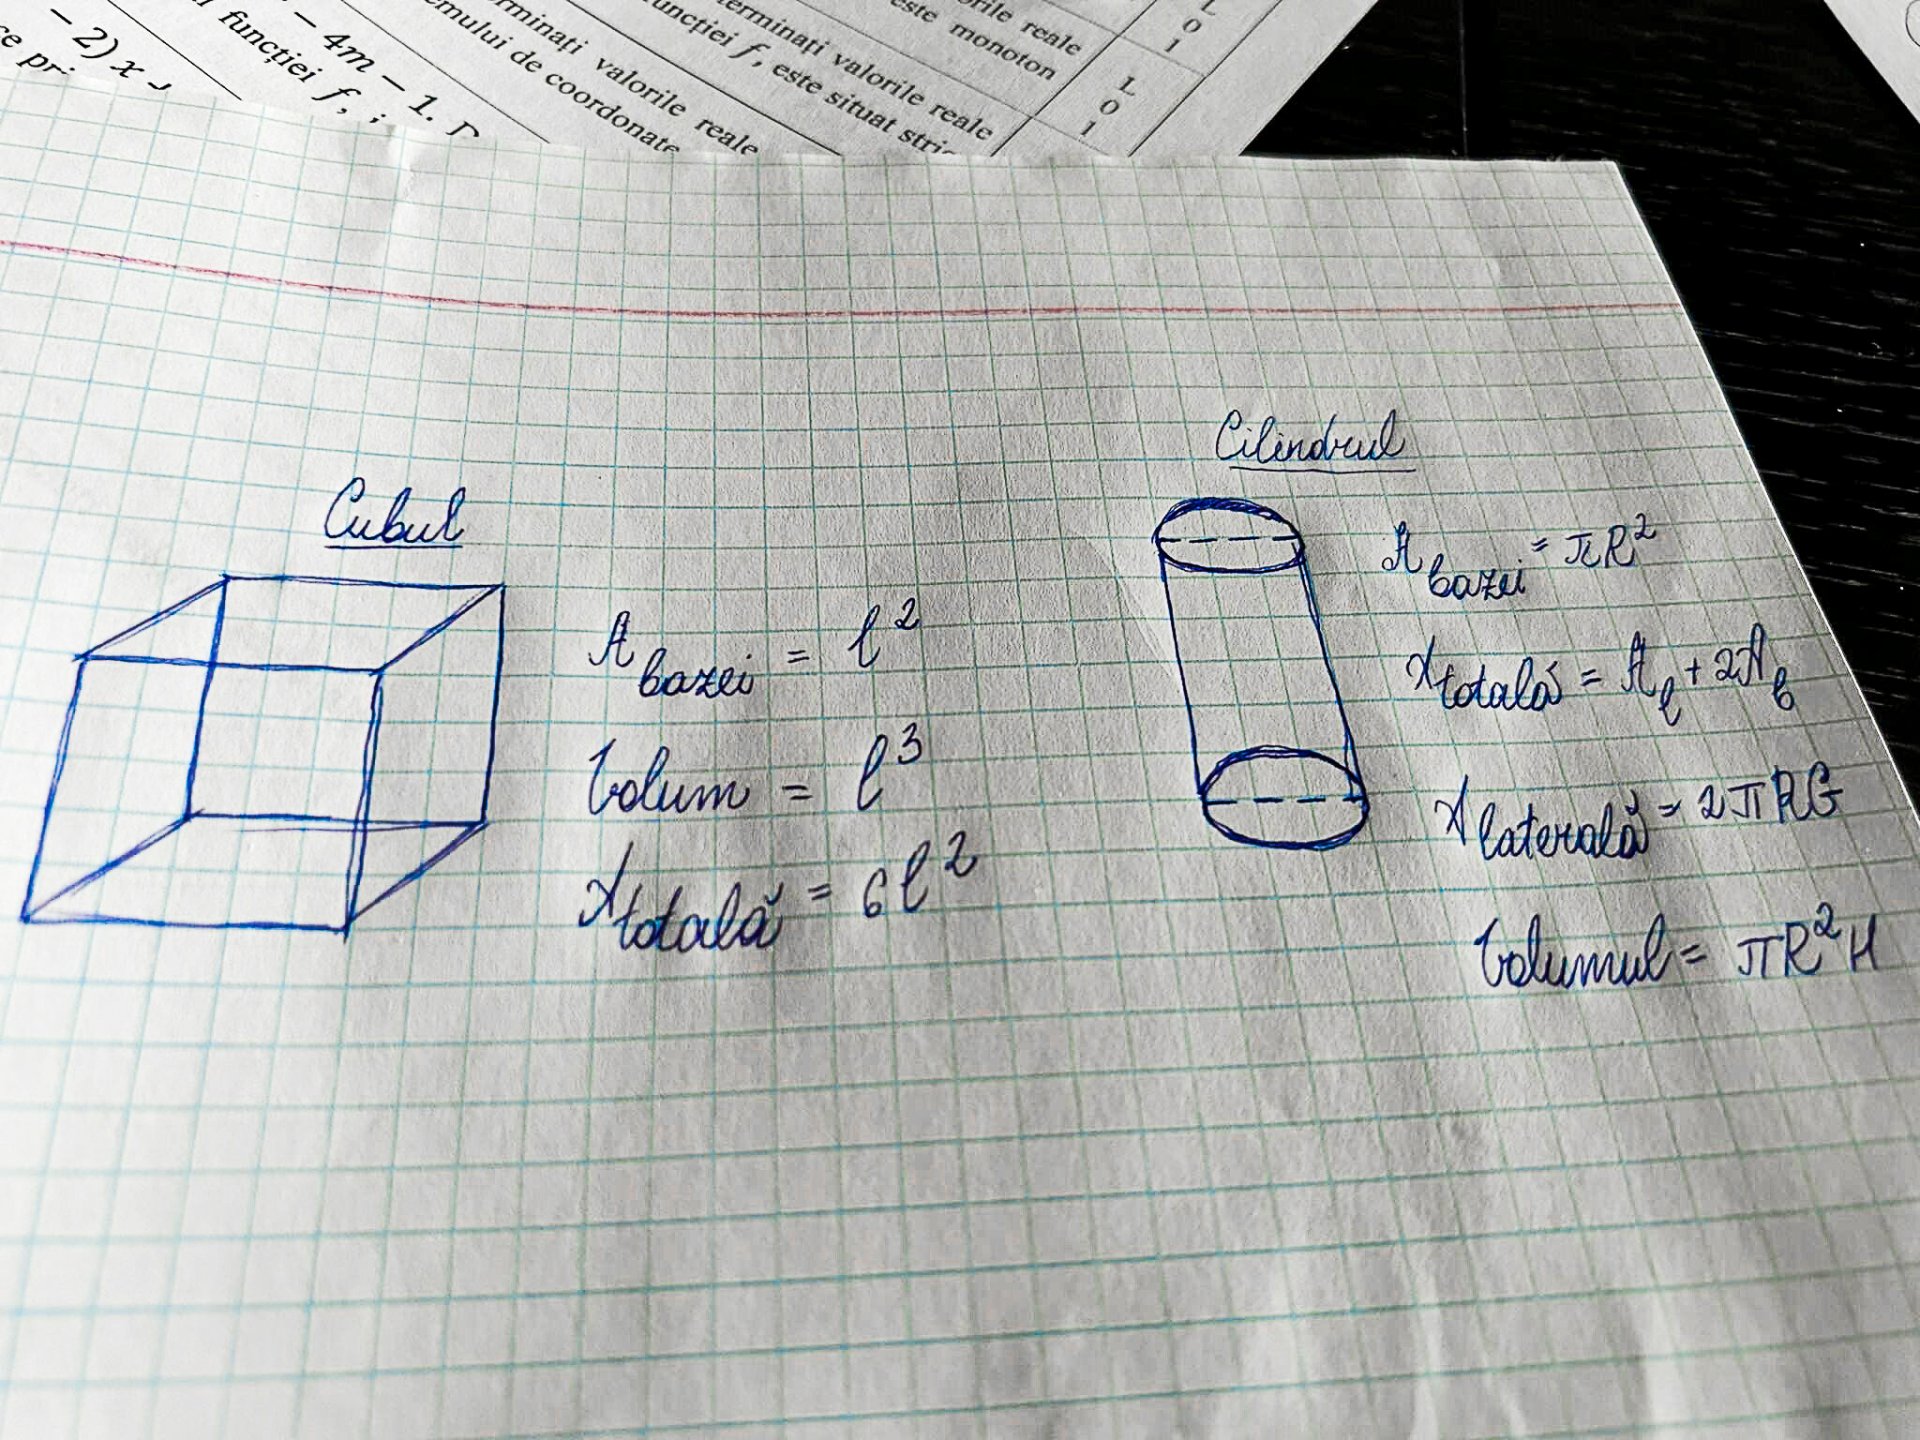 - 2) x +
ce pri
- 4m - 1. D
l funcției f, i
rminați valorile reale
emului de coordonate
terminați valorile reale
uncției f, este situat stric
orile reale
este monoton
L
0
1
L
0
1
Cubul
A bazei = l²
Volum = l³
A totală = 6l²
Cilindrul
A bazei = πR²
A totală = A l + 2A b
A laterală = 2πRG
Volumul = πR²H